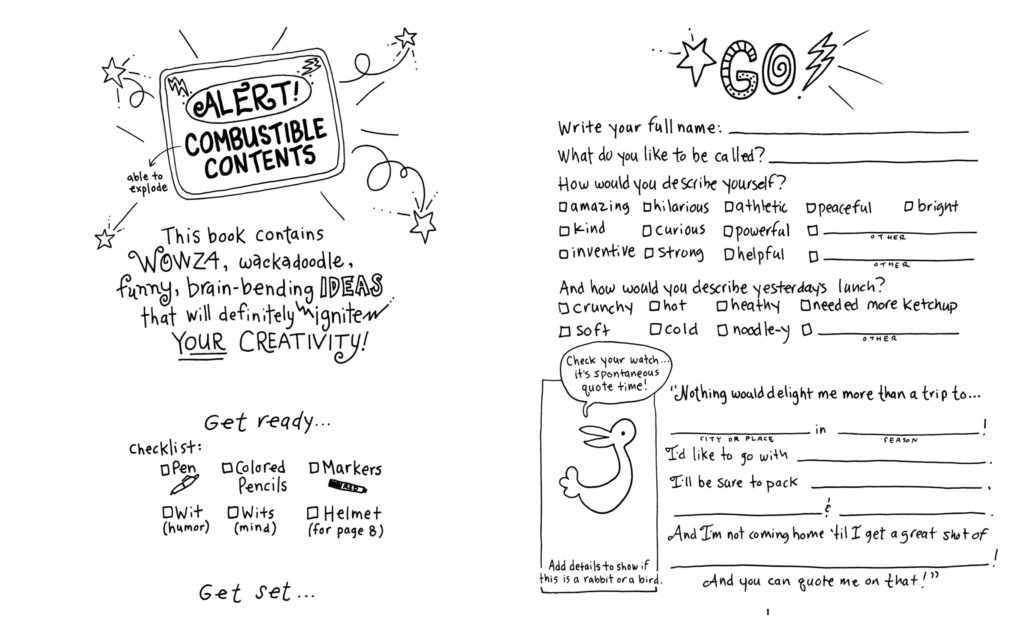 ALERT!
COMBUSTIBLE
CONTENTS
able to
explode
This book contains
WOWZA, wackadoodle,
funny, brain-bending IDEAS
that will definitely ignite
YOUR CREATIVITY!
Get ready...
Checklist:
Pen Colored Pencils Markers
RED
Wit (humor) Wits (mind) Helmet (for page 8)
Get set...
GO!
Write your full name:
What do you like to be called?
How would you describe yourself?
amazing hilarious athletic peaceful bright
kind curious powerful
OTHER
inventive strong helpful
OTHER
And how would you describe yesterday's lunch?
crunchy hot heathy needed more ketchup
soft cold noodle-y
OTHER
Check your watch...
it's spontaneous
quote time!
Add details to show if
this is a rabbit or a bird.
"Nothing would delight me more than a trip to...
in !
CITY OR PLACE SEASON
I'd like to go with .
I'll be sure to pack ,
& .
And I'm not coming home 'til I get a great shot of
!
And you can quote me on that!"
1